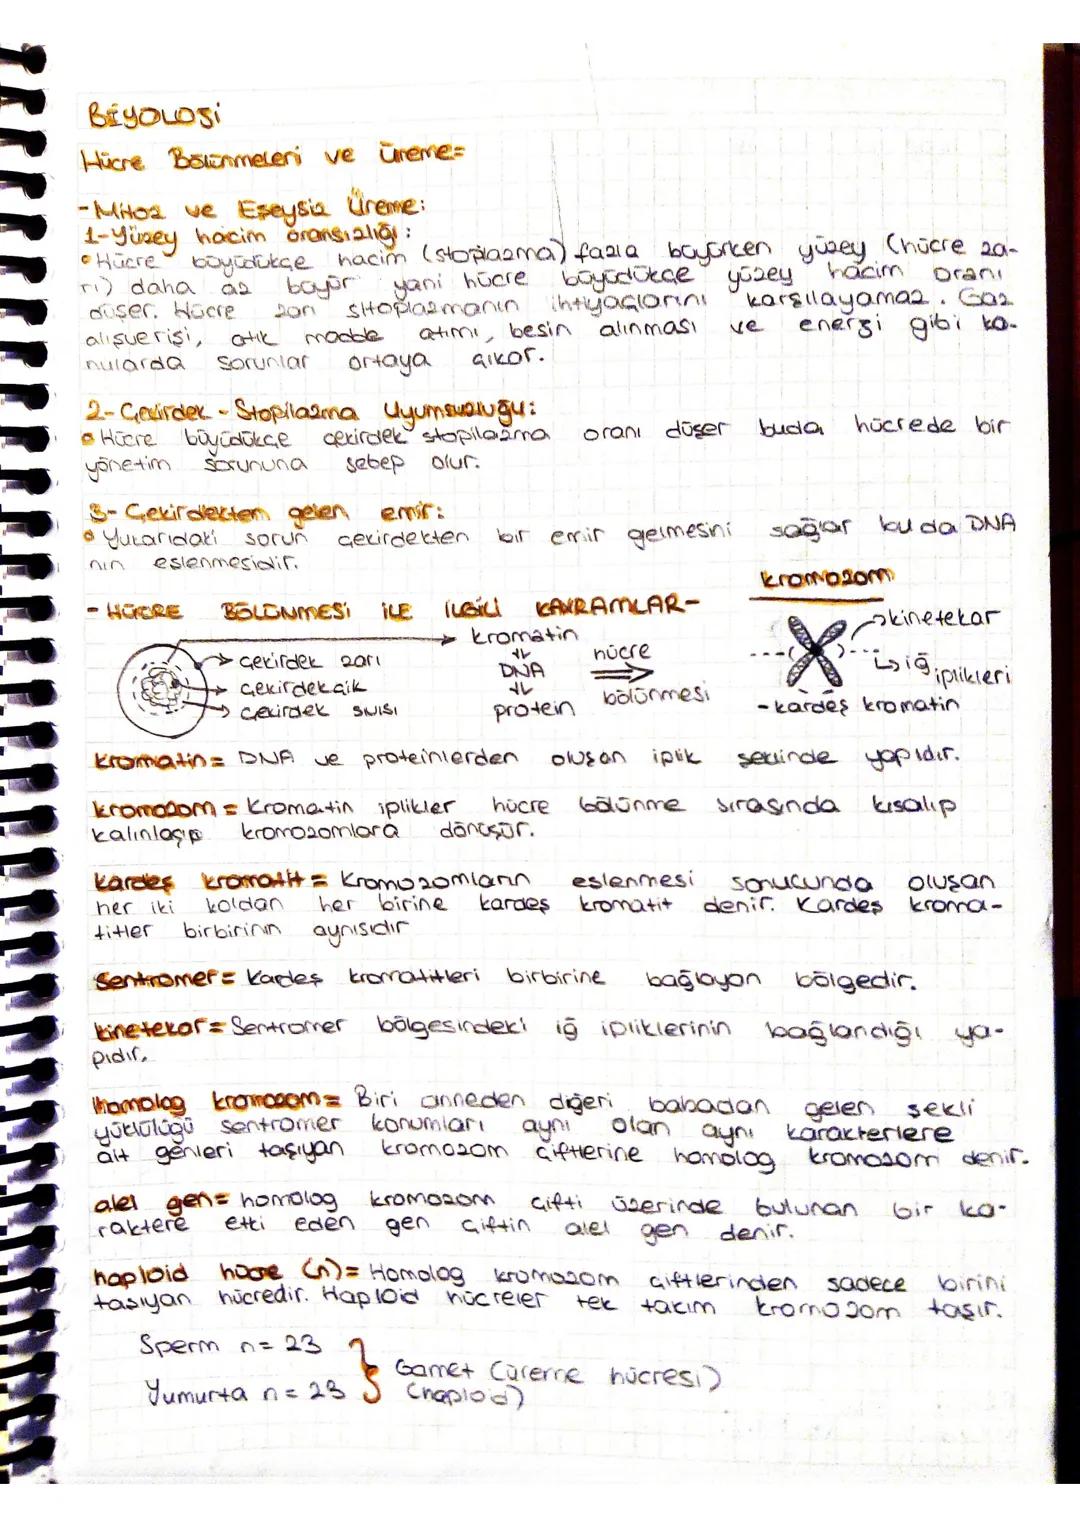 BİYOLOJİ
Hücre Bölünmeleri ve Üreme=
-Mitoz ve Eşeysiz Üreme:
1-Yüzey hacim oransızlığı:
• Hücre büyüdükçe hacim (stoplazma) fazla büyürken yüzey (hücre za-
rı) daha az büyür yani hücre büyüdükçe yüzey hacim oranı
düşer. Hücre zarı sitoplazmanın ihtiyaçlarını karşılayamaz. Gaz
alışverişi, atık madde atımı, besin alınması ve enerji gibi ko-
nularda sorunlar ortaya çıkar.
2- Çekirdek - Stopilazma Uyumsuzluğu:
• Hücre büyüdükçe çekirdek stopilazma oranı düşer buda hücrede bir
yönetim sorununa sebep olur.
3- Çekirdekten gelen emir:
• Yukarıdaki sorun çekirdekten bir emir gelmesini sağlar bu da DNA
nın eşlenmesidir.
- HÜCRE BÖLÜNMESİ İLE İLGİLİ KAVRAMLAR-
kromozom
kromatin
DNA
protein
çekirdek zarı
çekirdekçik
çekirdek sıvısı
hücre
bölünmesi
kinetekor
iğ iplikleri
- kardeş kromatin
kromatin= DNA ve proteinlerden oluşan iplik şeklinde yapıdır.
kromozom= Kromatin iplikler hücre bölünme sırasında kısalıp
kalınlaşıp kromozomlara dönüşür.
kardeş kromatit= Kromozomların eşlenmesi sonucunda oluşan
her iki koldan her birine kardeş kromatit denir. Kardeş kroma-
titler birbirinin aynısıdır
Sentromer= Kardeş kromatitleri birbirine bağlayan bölgedir.
kinetekor= Sentromer bölgesindeki iğ ipliklerinin bağlandığı ya-
pıdır.
Homolog kromozom= Biri anneden diğeri babadan gelen şekli
yüklülüğü sentromer konumları aynı olan aynı karakterlere
ait genleri taşıyan kromozom çiftlerine homolog kromozom denir.
alel gen= homolog kromozom çifti üzerinde bulunan bir ka-
raktere etki eden gen çiftin alel gen denir.
haploid hücre (n)= Homolog kromozom çiftlerinden sadece birini
taşıyan hücredir. Haploid hücreler tek takım kromozom taşır.
Sperm n= 23
Yumurta n= 23
Gamet (üreme hücresi)
(haploid)